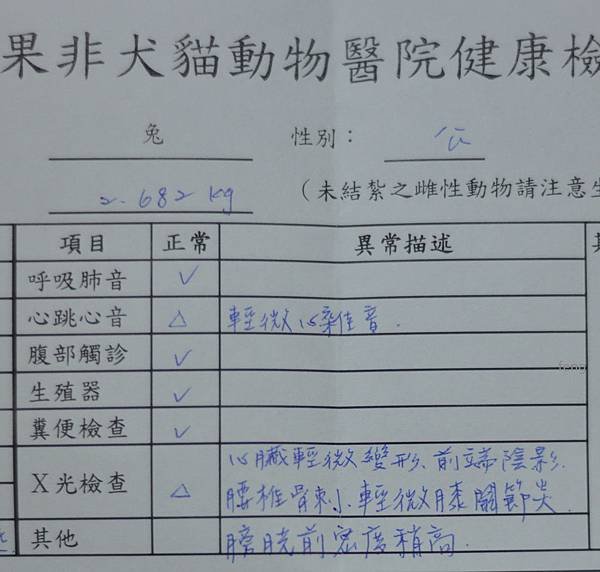 果非犬貓動物醫院健康檢
兔 性別： 公
2.682 kg （未結紮之雌性動物請注意
項目 正常 異常描述
呼吸肺音 ✓
心跳心音 △ 輕微心雜音.
腹部觸診 ✓
生殖器 ✓
糞便檢查 ✓
心臟輕微變形、前端陰影.
X光檢查 △ 腰椎骨刺、輕微膝關節炎
其他 膀胱前密度稍高.